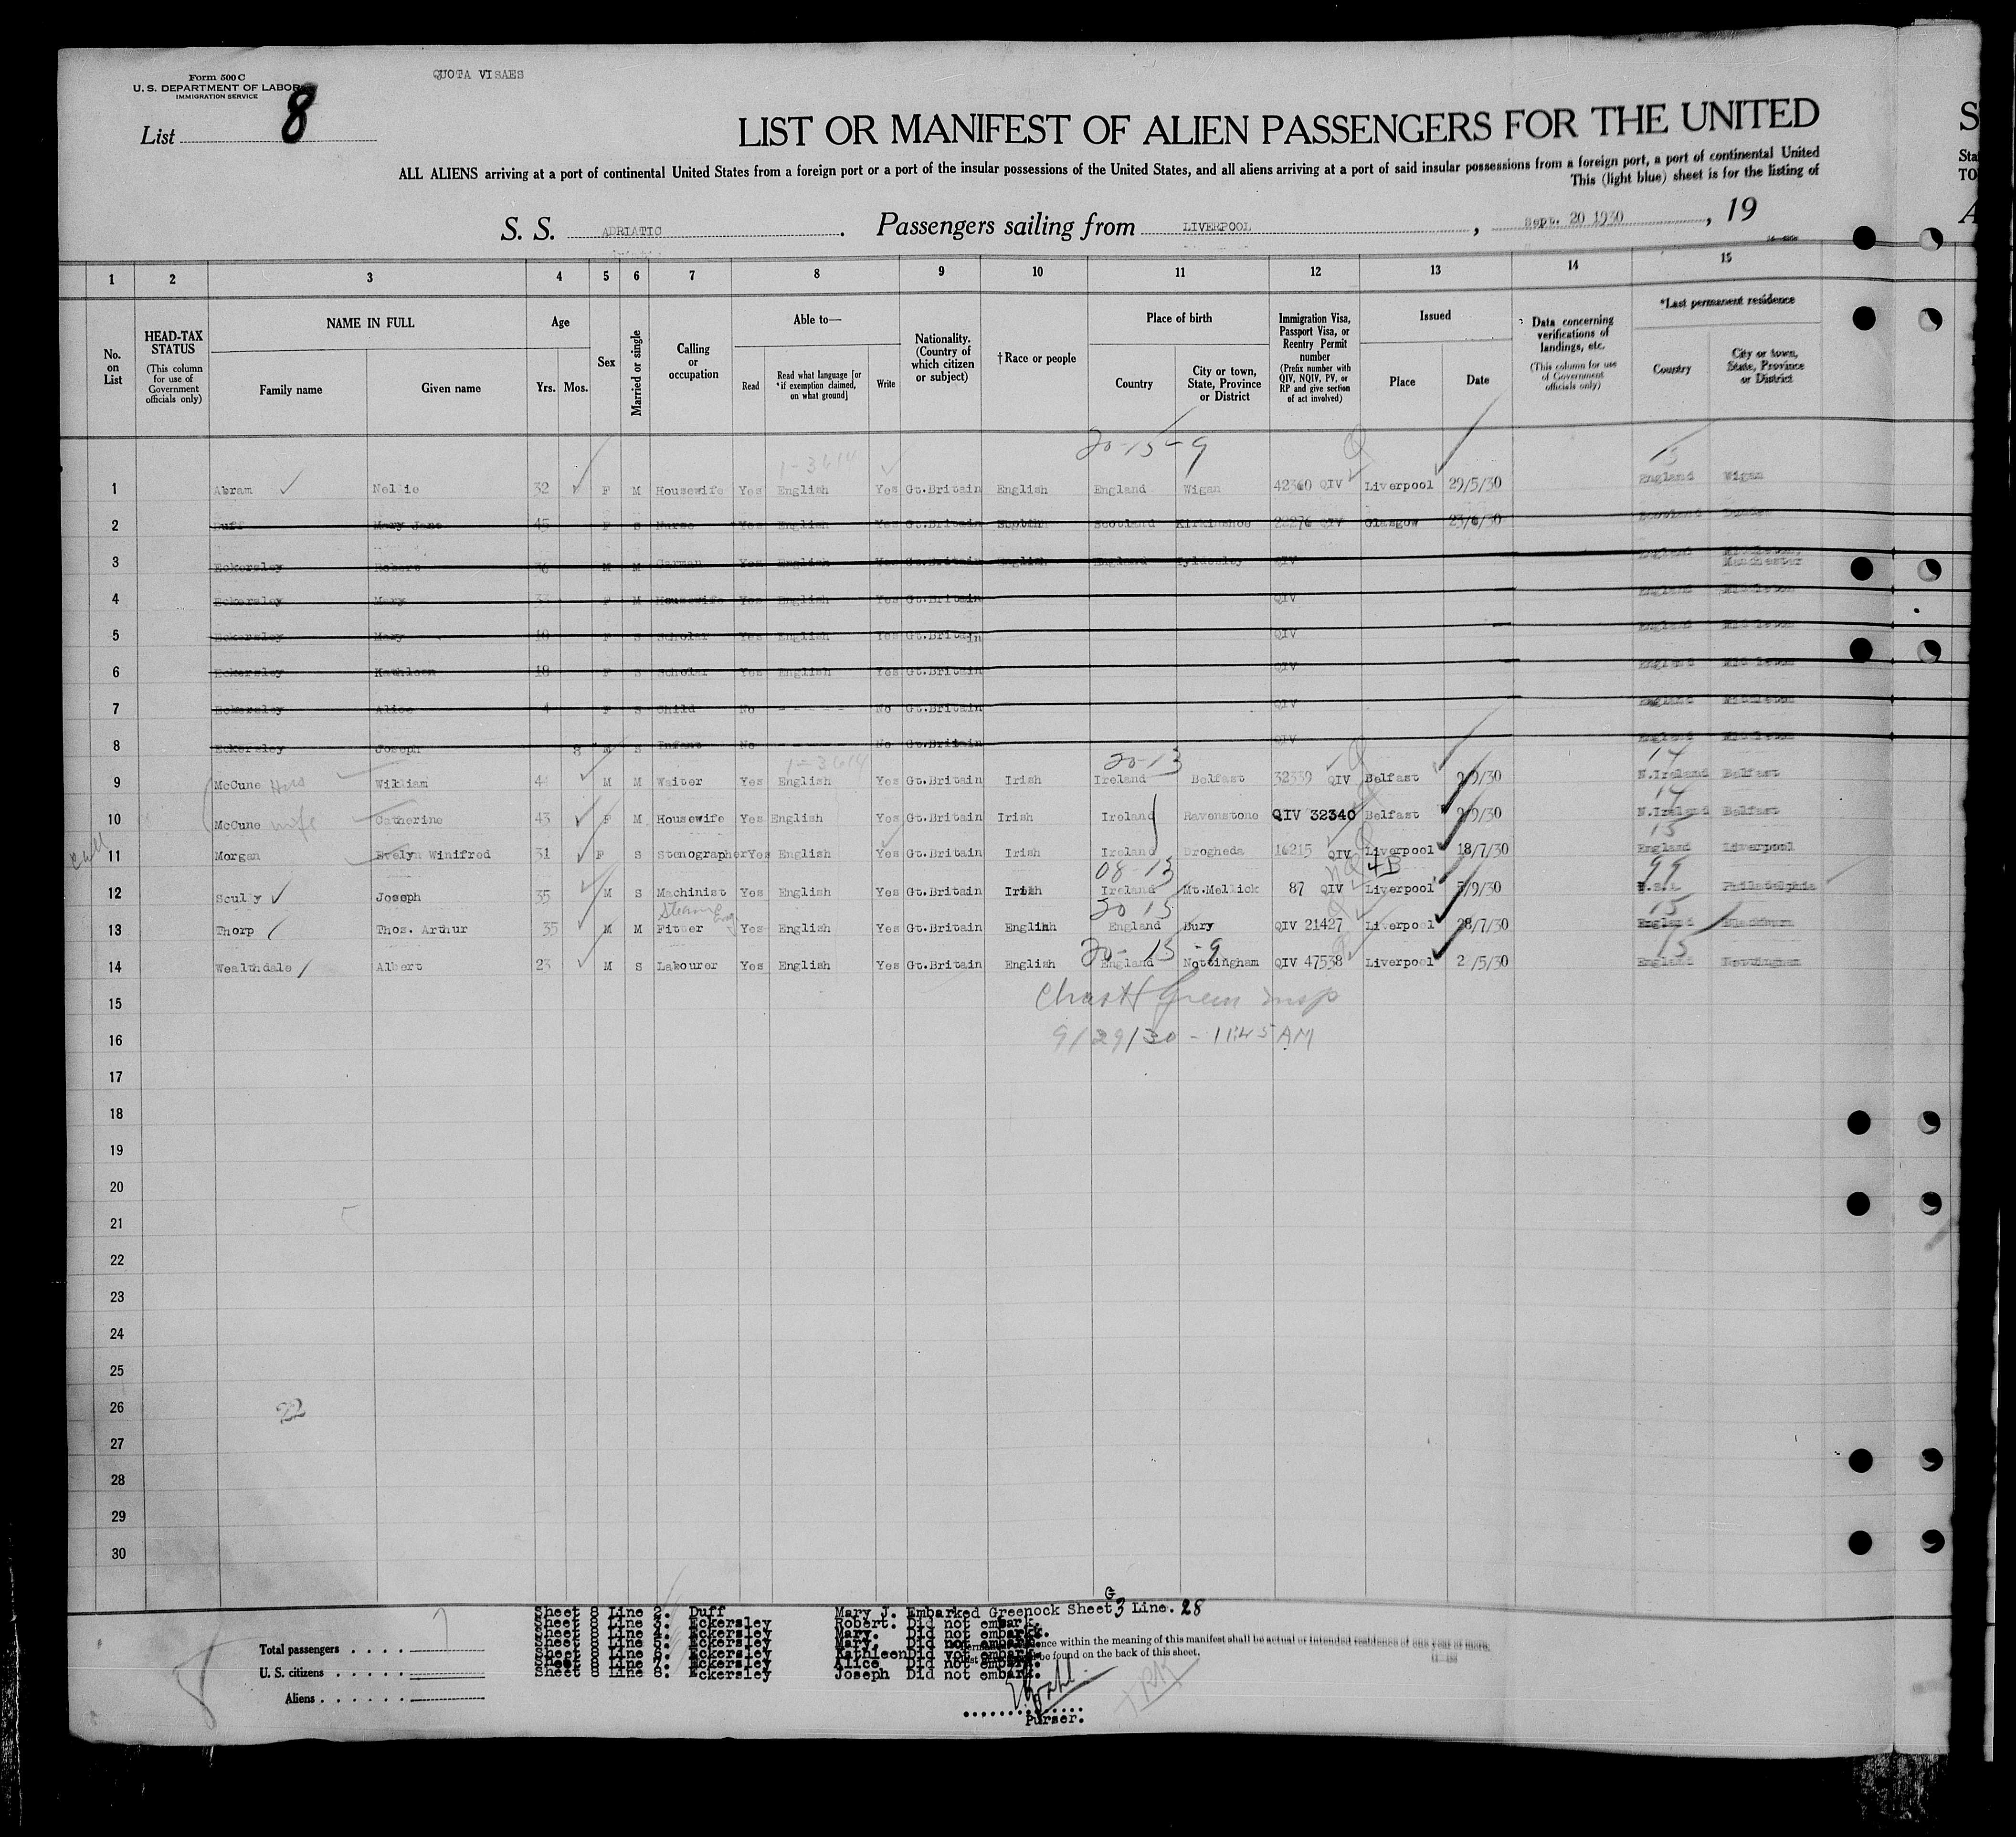 Form 500 C
U. S. DEPARTMENT OF LABOR
IMMIGRATION SERVICE
QUOTA VISAES
List 8
LIST OR MANIFEST OF ALIEN PASSENGERS FOR THE UNITED
S
ALL ALIENS arriving at a port of continental United States from a foreign port or a port of the insular possessions of the United States, and all aliens arriving at a port of said insular possessions from a foreign port, a port of continental United
Sta
This (light blue) sheet is for the listing of
TO
S. S. ADRIATIC. Passengers sailing from LIVERPOOL, Sept. 20 1930, 19
A
1 2 3 4 5 6 7 8 9 10 11 12 13 14 15
No. on List
HEAD-TAX STATUS (This column for use of Government officials only)
NAME IN FULL
Family name Given name
Age
Yrs. Mos.
Sex
Married or single
Calling or occupation
Able to—
Read
Read what language [or if exemption claimed, on what ground]
Write
Nationality. (Country of which citizen or subject)
†Race or people
Place of birth
Country
City or town, State, Province or District
Immigration Visa, Passport Visa, or Reentry Permit number (Prefix number with QIV, NQIV, PV, or RP and give section of act involved)
Issued
Place Date
Data concerning verifications of landings, etc. (This column for use of Government officials only)
*Last permanent residence
Country
City or town, State, Province or District
20-15-9
1-3614
15
1 Abram Nellie 32 F M Housewife Yes English Yes Gt.Britain English England Wigan 42360 QIV Liverpool 29/5/30 England Wigan
2 Duff Mary Jane 45 F S Nurse Yes English Yes Gt.Britain Scotland QIV Glasgow 23/6/30 Scotland
3 Eckersley Robert 36 M M Yes English Yes Gt.Britain English England Tyldesley QIV England Middleton, Manchester
4 Eckersley Mary F M Housewife Yes English Yes Gt.Britain QIV England Middleton
5 Eckersley Mary F S Scholar Yes English Yes Gt.Britain QIV England Middleton
6 Eckersley Kathleen F S Scholar Yes English Yes Gt.Britain QIV England Middleton
7 Eckersley Alice 4 F S Child No - - - - - No Gt.Britain QIV England Middleton
8 Eckersley Joseph 8 M S Infant No - - - - - No Gt.Britain QIV England Middleton
1-3614
20-13
14
9 McCune William 44 M M Waiter Yes English Yes Gt.Britain Irish Ireland Belfast 32339 QIV Belfast 9/9/30 N.Ireland Belfast
14
10 McCune wife Catherine 43 F M Housewife Yes English Yes Gt.Britain Irish Ireland Ravenstone QIV 32340 Belfast 9/9/30 N.Ireland Belfast
15
11 Morgan Evelyn Winifred 31 F S Stenographer Yes English Yes Gt.Britain Irish Ireland Drogheda 16215 QIV Liverpool 18/7/30 England Liverpool
08-13
NQ 4B
99
12 Scully Joseph 35 M S Machinist Yes English Yes Gt.Britain Irish Ireland Mt.Mellick 87 QIV Liverpool 5/9/30 U.S.A. Philadelphia
Steam Eng.
20 15
15
13 Thorp Thos. Arthur 35 M M Fitter Yes English Yes Gt.Britain English England Bury QIV 21427 Liverpool 28/7/30 England Blackburn
20-15-9
15
14 Wealthdale Albert 23 M S Labourer Yes English Yes Gt.Britain English England Nottingham QIV 47538 Liverpool 2 /5/30 England Nottingham
15
16 9/29/30 - 11:45 AM
17
18
19
20
21
22
23
24
25
26 22
27
28
29
30
Total passengers . . . . 7
U. S. citizens . . . . .
Aliens . . . . . .
8
Sheet 8 Line 2. Duff Mary J. Embarked Greenock Sheet G3 Line. 28
Sheet 8 Line 3. Eckersley Robert. Did not embark.
Sheet 8 Line 4. Eckersley Mary. Did not embark.
Sheet 8 Line 5. Eckersley Mary. Did not embark.
Sheet 8 Line 6. Eckersley Kathleen Did not embark.
Sheet 8 Line 7. Eckersley Alice Did not embark.
Sheet 8 Line 8. Eckersley Joseph Did not embark.
within the meaning of this manifest shall be actual or intended residence of one year or more.
be found on the back of this sheet.
Purser.